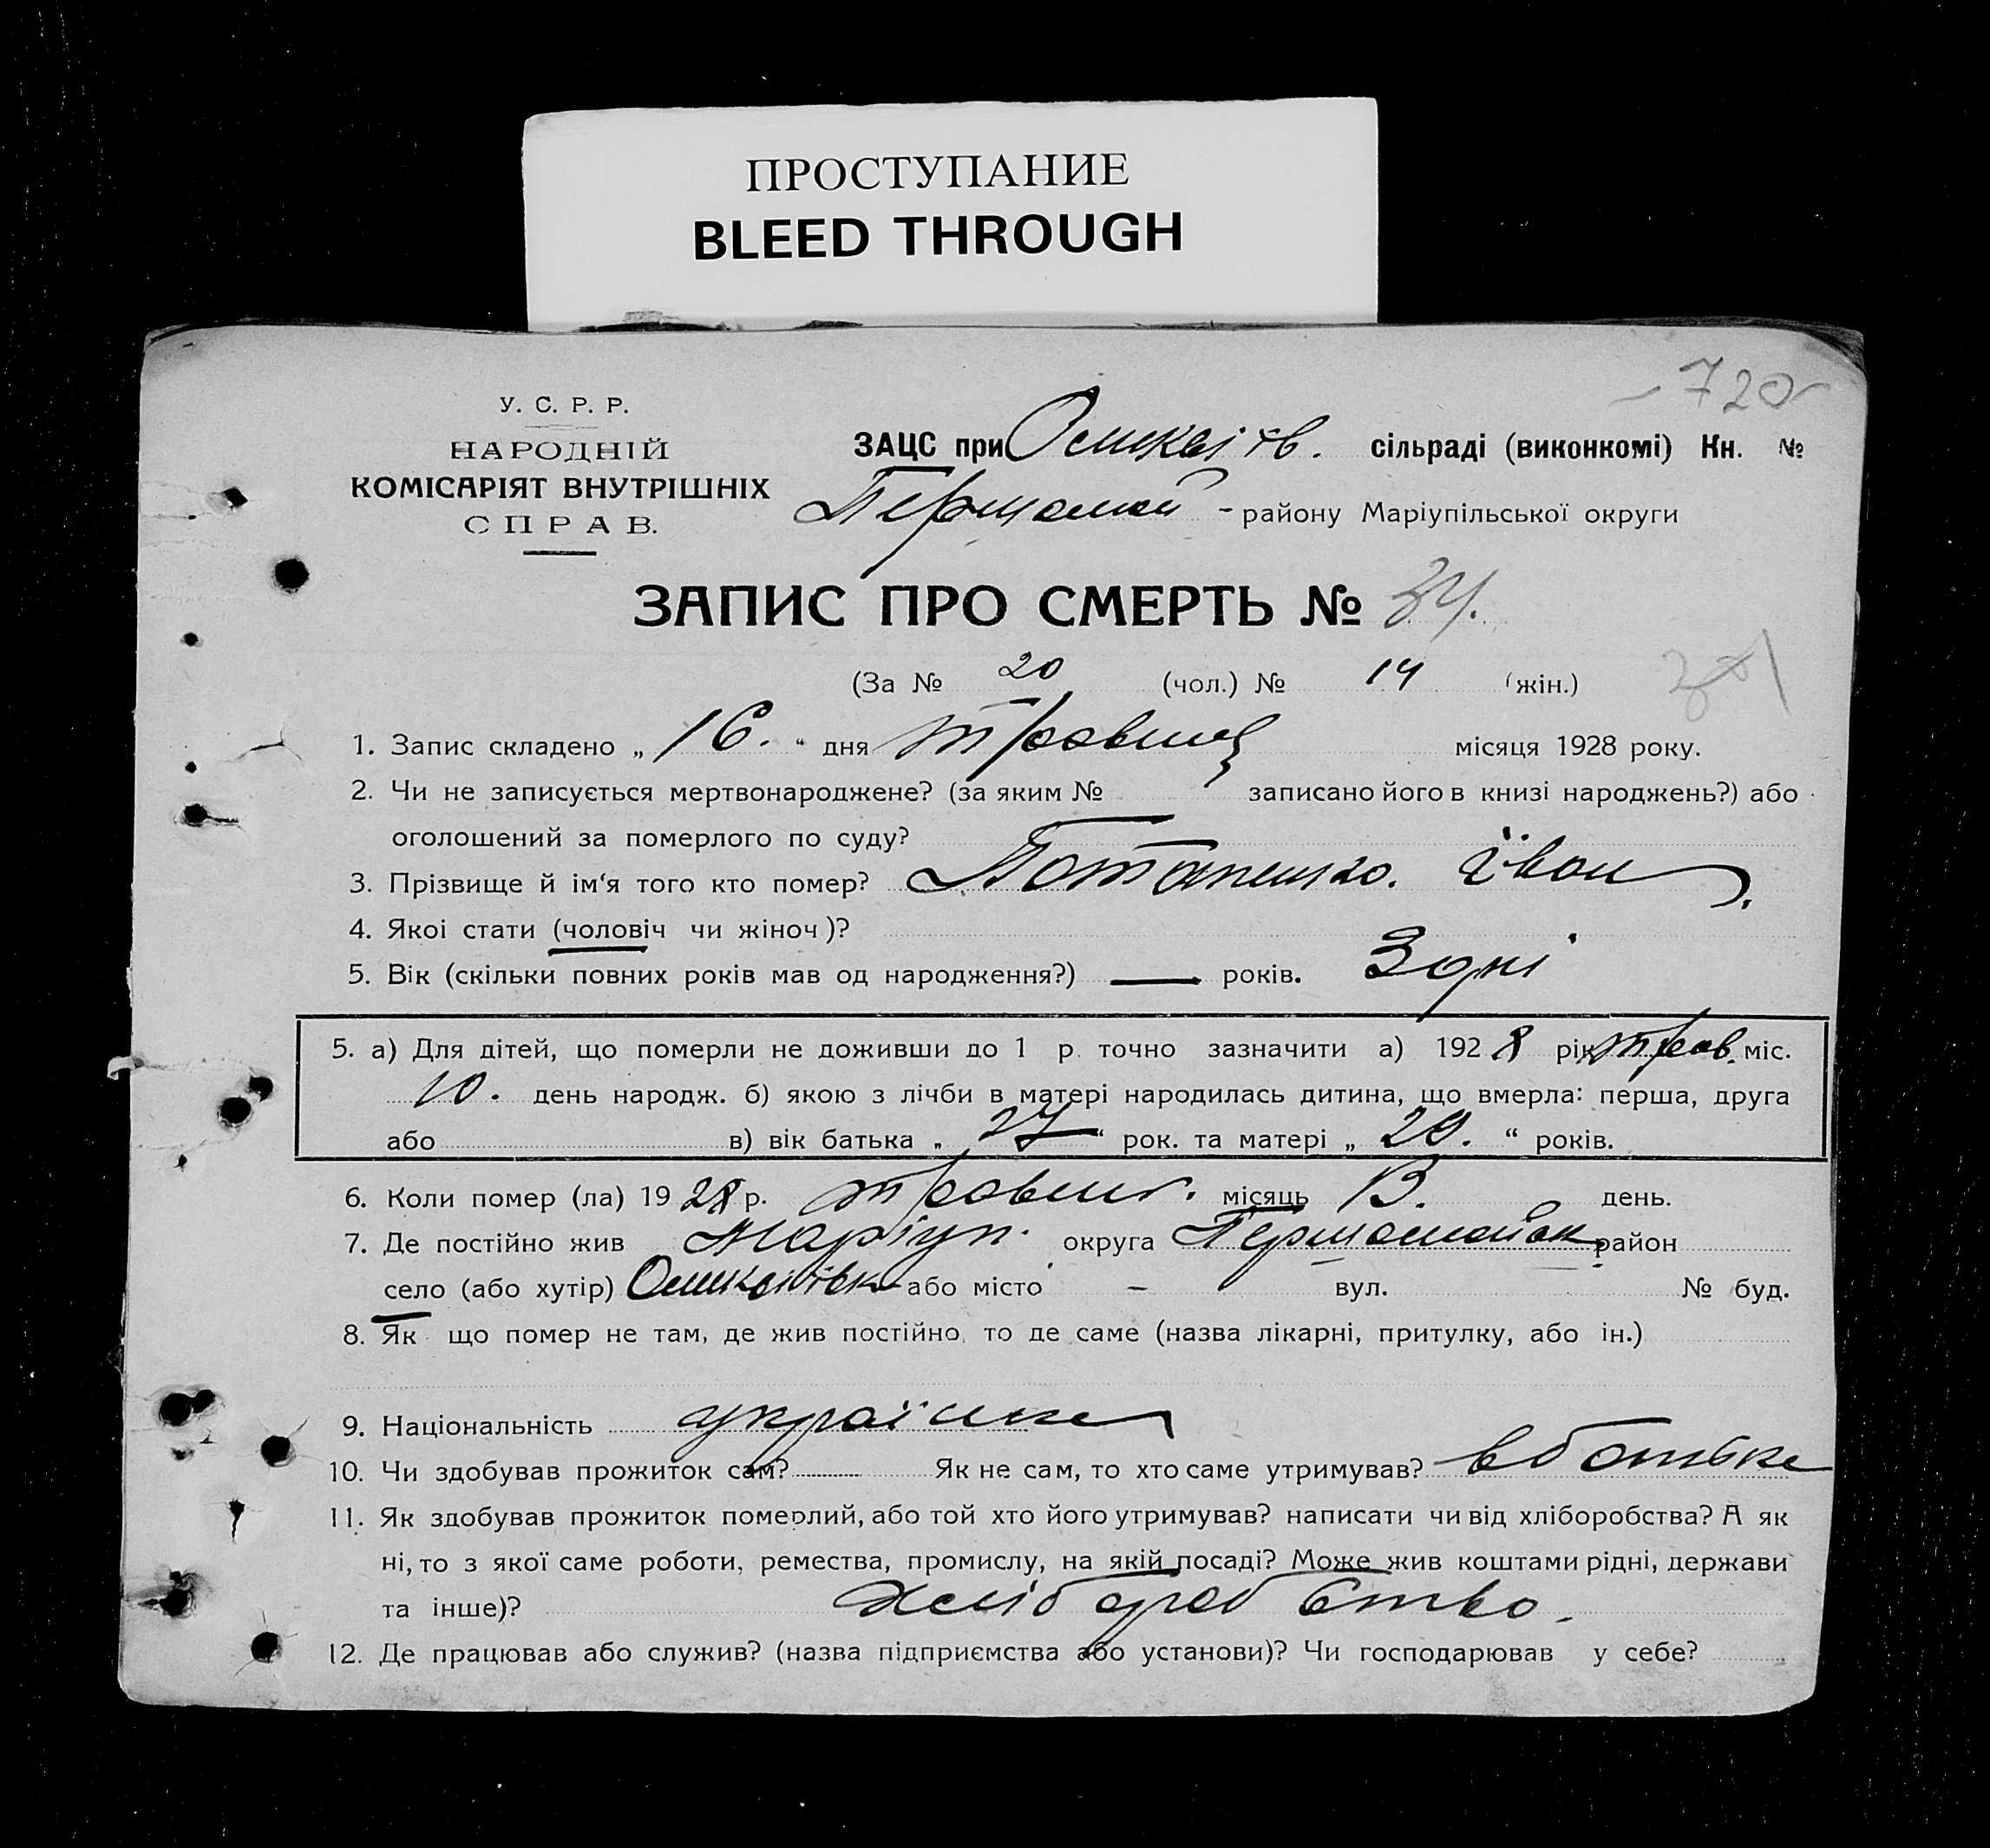 ПРОСТУПАНИЕ
BLEED THROUGH
720
У. С. Р. Р.
НАРОДНІЙ
КОМІСАРІЯТ ВНУТРІШНІХ
СПРАВ.
ЗАЦС при сільраді (виконкомі) Кн. №
Першомай - району Маріупільської округи
ЗАПИС ПРО СМЕРТЬ № 34.
(За № 20 (чол.) № 14 (жін.)
1. Запис складено „ 16. “ дня травня місяця 1928 року.
2. Чи не записується мертвонароджене? (за яким № записано його в книзі народжень?) або
оголошений за померлого по суду?
3. Прізвище й ім‘я того кто помер? Потапенко. Іван
4. Якоі стати (чоловіч чи жіноч)?
5. Вік (скільки повних років мав од народження?) — років. 3 дні
5. а) Для дітей, що померли не доживши до 1 р. точно зазначити а) 1928 рік трав. міс.
10. день народж. б) якою з лічби в матері народилась дитина, що вмерла: перша, друга
або в) вік батька „ 27 “ рок. та матері „ 20. “ років.
6. Коли помер (ла) 1928 р. травня. місяць 13. день.
7. Де постійно жив Маріуп. округа Першомайськ район
село (або хутір) або місто - вул. № буд.
8. Як що помер не там, де жив постійно, то де саме (назва лікарні, притулку, або ін.)
9. Національність українец
10. Чи здобував прожиток сам? Як не сам, то хто саме утримував? в батька
11. Як здобував прожиток померлий, або той хто його утримував? написати чи від хліборобства? А як
ні, то з якої саме роботи, ремества, промислу, на якій посаді? Може жив коштами рідні, держави
та інше)? хліборобство.
12. Де працював або служив? (назва підприємства або установи)? Чи господарював у себе?